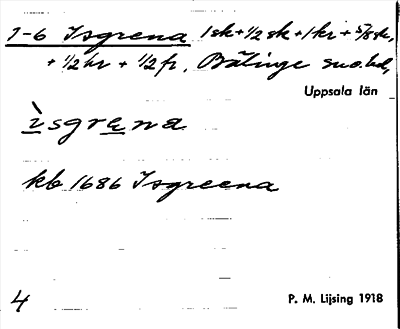 1-6 Isgrena 1 sk + 1/2 sk + 1 kr + 5/8 sk,
+ 1/2 kr + 1/2 fr, Bälinge sn o. hd,
Uppsala län
ìsgrena
kb 1686 Isgreena
4 P. M. Lijsing 1918